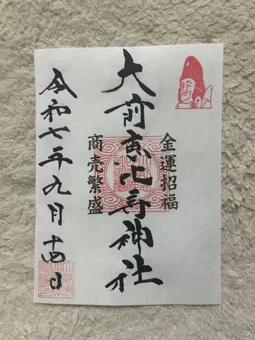 金運招福
大前恵比寿神社
商売繁盛
令和七年九月十四日